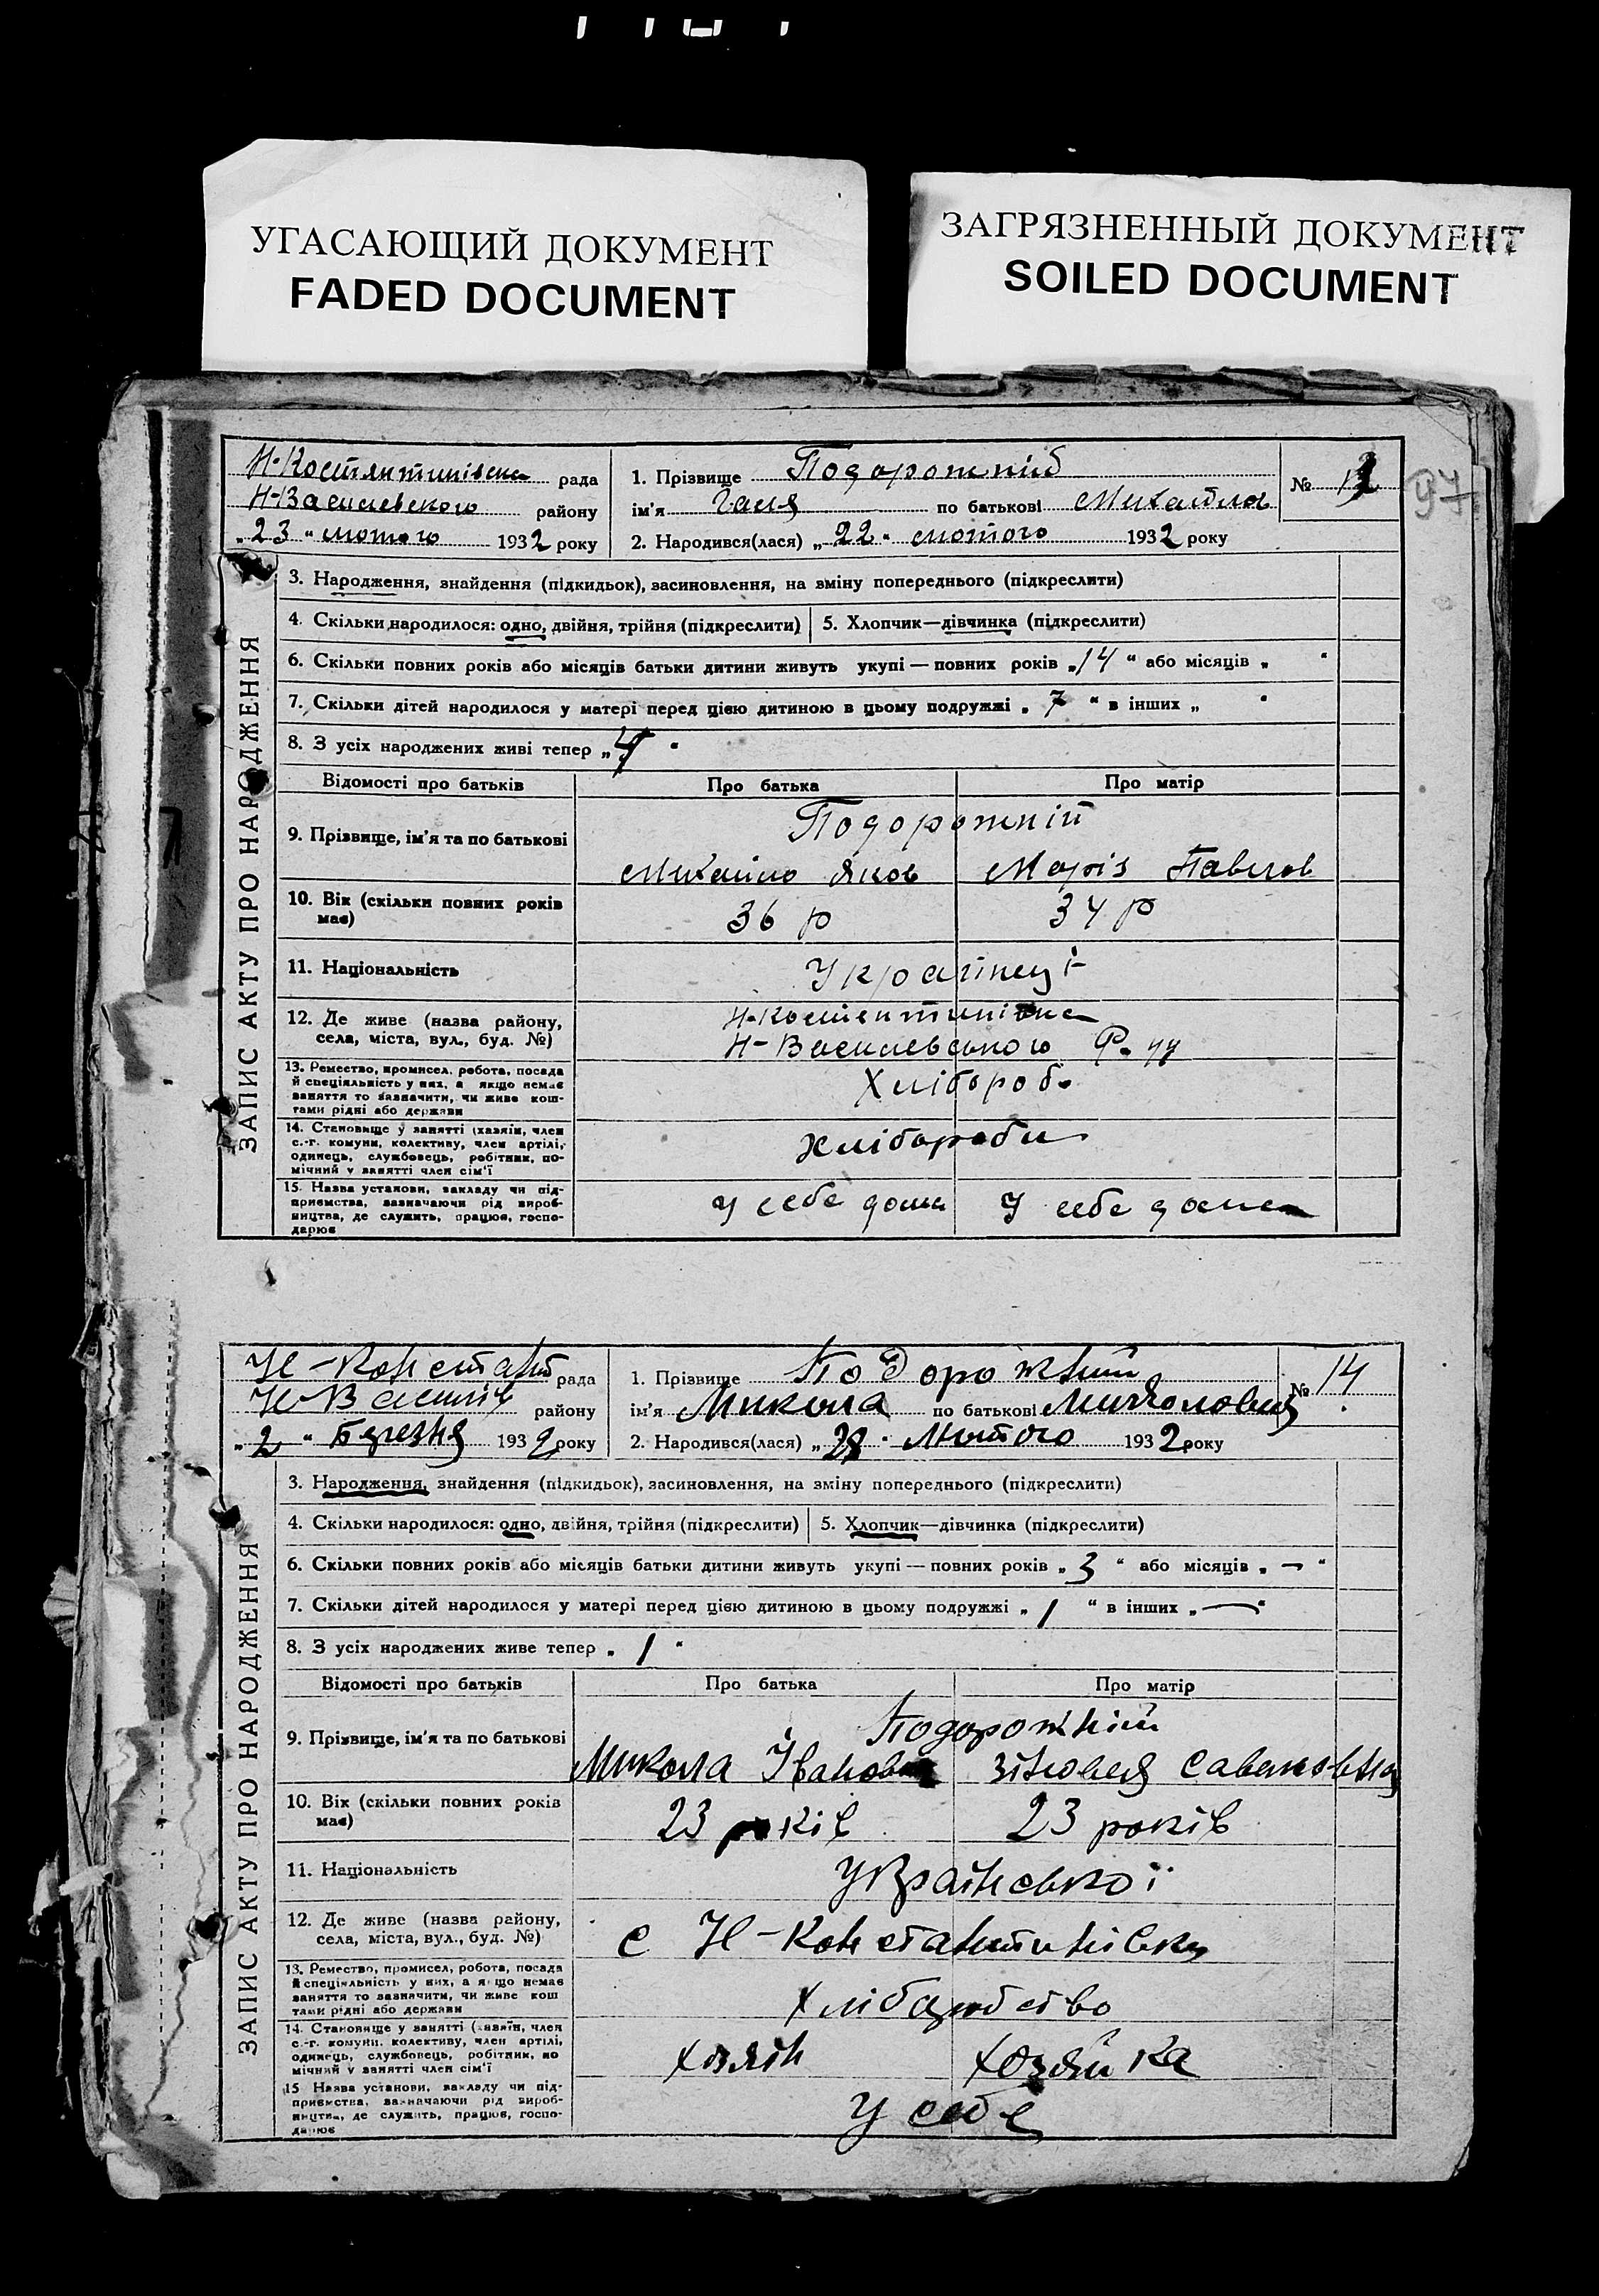 УГАСАЮЩИЙ ДОКУМЕНТ
FADED DOCUMENT
ЗАГРЯЗНЕННЫЙ ДОКУМЕНТ
SOILED DOCUMENT
97
ЗАПИС АКТУ ПРО НАРОДЖЕННЯ
Н-Костянтинівська рада
Н-Василевского району
„23" лютого 1932 року
1. Прізвище Подорожній
ім'я Галя по батькові Михайлов
№
2. Народився(лася) „22" лютого 1932 року
3. Народження, знайдення (підкидьок), засиновлення, на зміну попереднього (підкреслити)
4. Скільки народилося: одно, двійня, трійня (підкреслити) 5. Хлопчик—дівчинка (підкреслити)
6. Скільки повних років або місяців батьки дитини живуть укупі — повних років „14" або місяців „ "
7. Скільки дітей народилося у матері перед цією дитиною в цьому подружжі „7" в інших „ "
8. З усіх народжених живі тепер „4"
Відомості про батьків Про батька Про матір
9. Прізвище, ім'я та по батькові
Подорожній
Михайло Яков Марія Павлов
10. Вік (скільки повних років має)
36 р 34 р
11. Національність
Українці
12. Де живе (назва району, села, міста, вул., буд. №)
Н-Василевського
13. Ремество, промисел, робота, посада
й спеціяльність у них, а якщо немає
заняття то зазначити, чи живе кош-
тами рідні або держави
Хлібороб
14. Становище у занятті (хазяїн, член
с.-г. комуни, колективу, член артілі,
одинець, службовець, робітник, по-
мічний у занятті член сім'ї
Хлібороби
15. Назва установи, закладу чи під-
приємства, зазначаючи рід вироб-
ництва, де служить, працює, госпо-
дарює
у себе дома У себе дома
ЗАПИС АКТУ ПРО НАРОДЖЕННЯ
Н-Констант рада
Н-Василів району
„2" Березня 1932 року
1. Прізвище Подорожний
ім'я Микола по батькові Миколович
№ 14
2. Народився(лася) „28" Лютого 1932 року
3. Народження, знайдення (підкидьок), засиновлення, на зміну попереднього (підкреслити)
4. Скільки народилося: одно, двійня, трійня (підкреслити) 5. Хлопчик—дівчинка (підкреслити)
6. Скільки повних років або місяців батьки дитини живуть укупі — повних років „3" або місяців „—"
7. Скільки дітей народилося у матері перед цією дитиною в цьому подружжі „1" в інших „—"
8. З усіх народжених живе тепер „1"
Відомості про батьків Про батька Про матір
9. Прізвище, ім'я та по батькові
Подорожній
Микола Іванович Зіновея Савеловна
10. Вік (скільки повних років має)
23 років 23 років
11. Національність
Української
12. Де живе (назва району, села, міста, вул., буд. №)
с Н-Константинівка
13. Ремество, промисел, робота, посада
й спеціяльність у них, а якщо немає
заняття то зазначити, чи живе кош
тами рідні або держави
14. Становище у занятті (хазяїн, член
с.-г. комуни, колективу, член артілі,
одинець, службовець, робітник, по
мічний у занятті член сім'ї
Хозяїн Хозяйка
15 Назва установи, закладу чи під-
приємства, зазначаючи рід вироб-
ництва, де служить, працює, госпо-
дарює
У себе